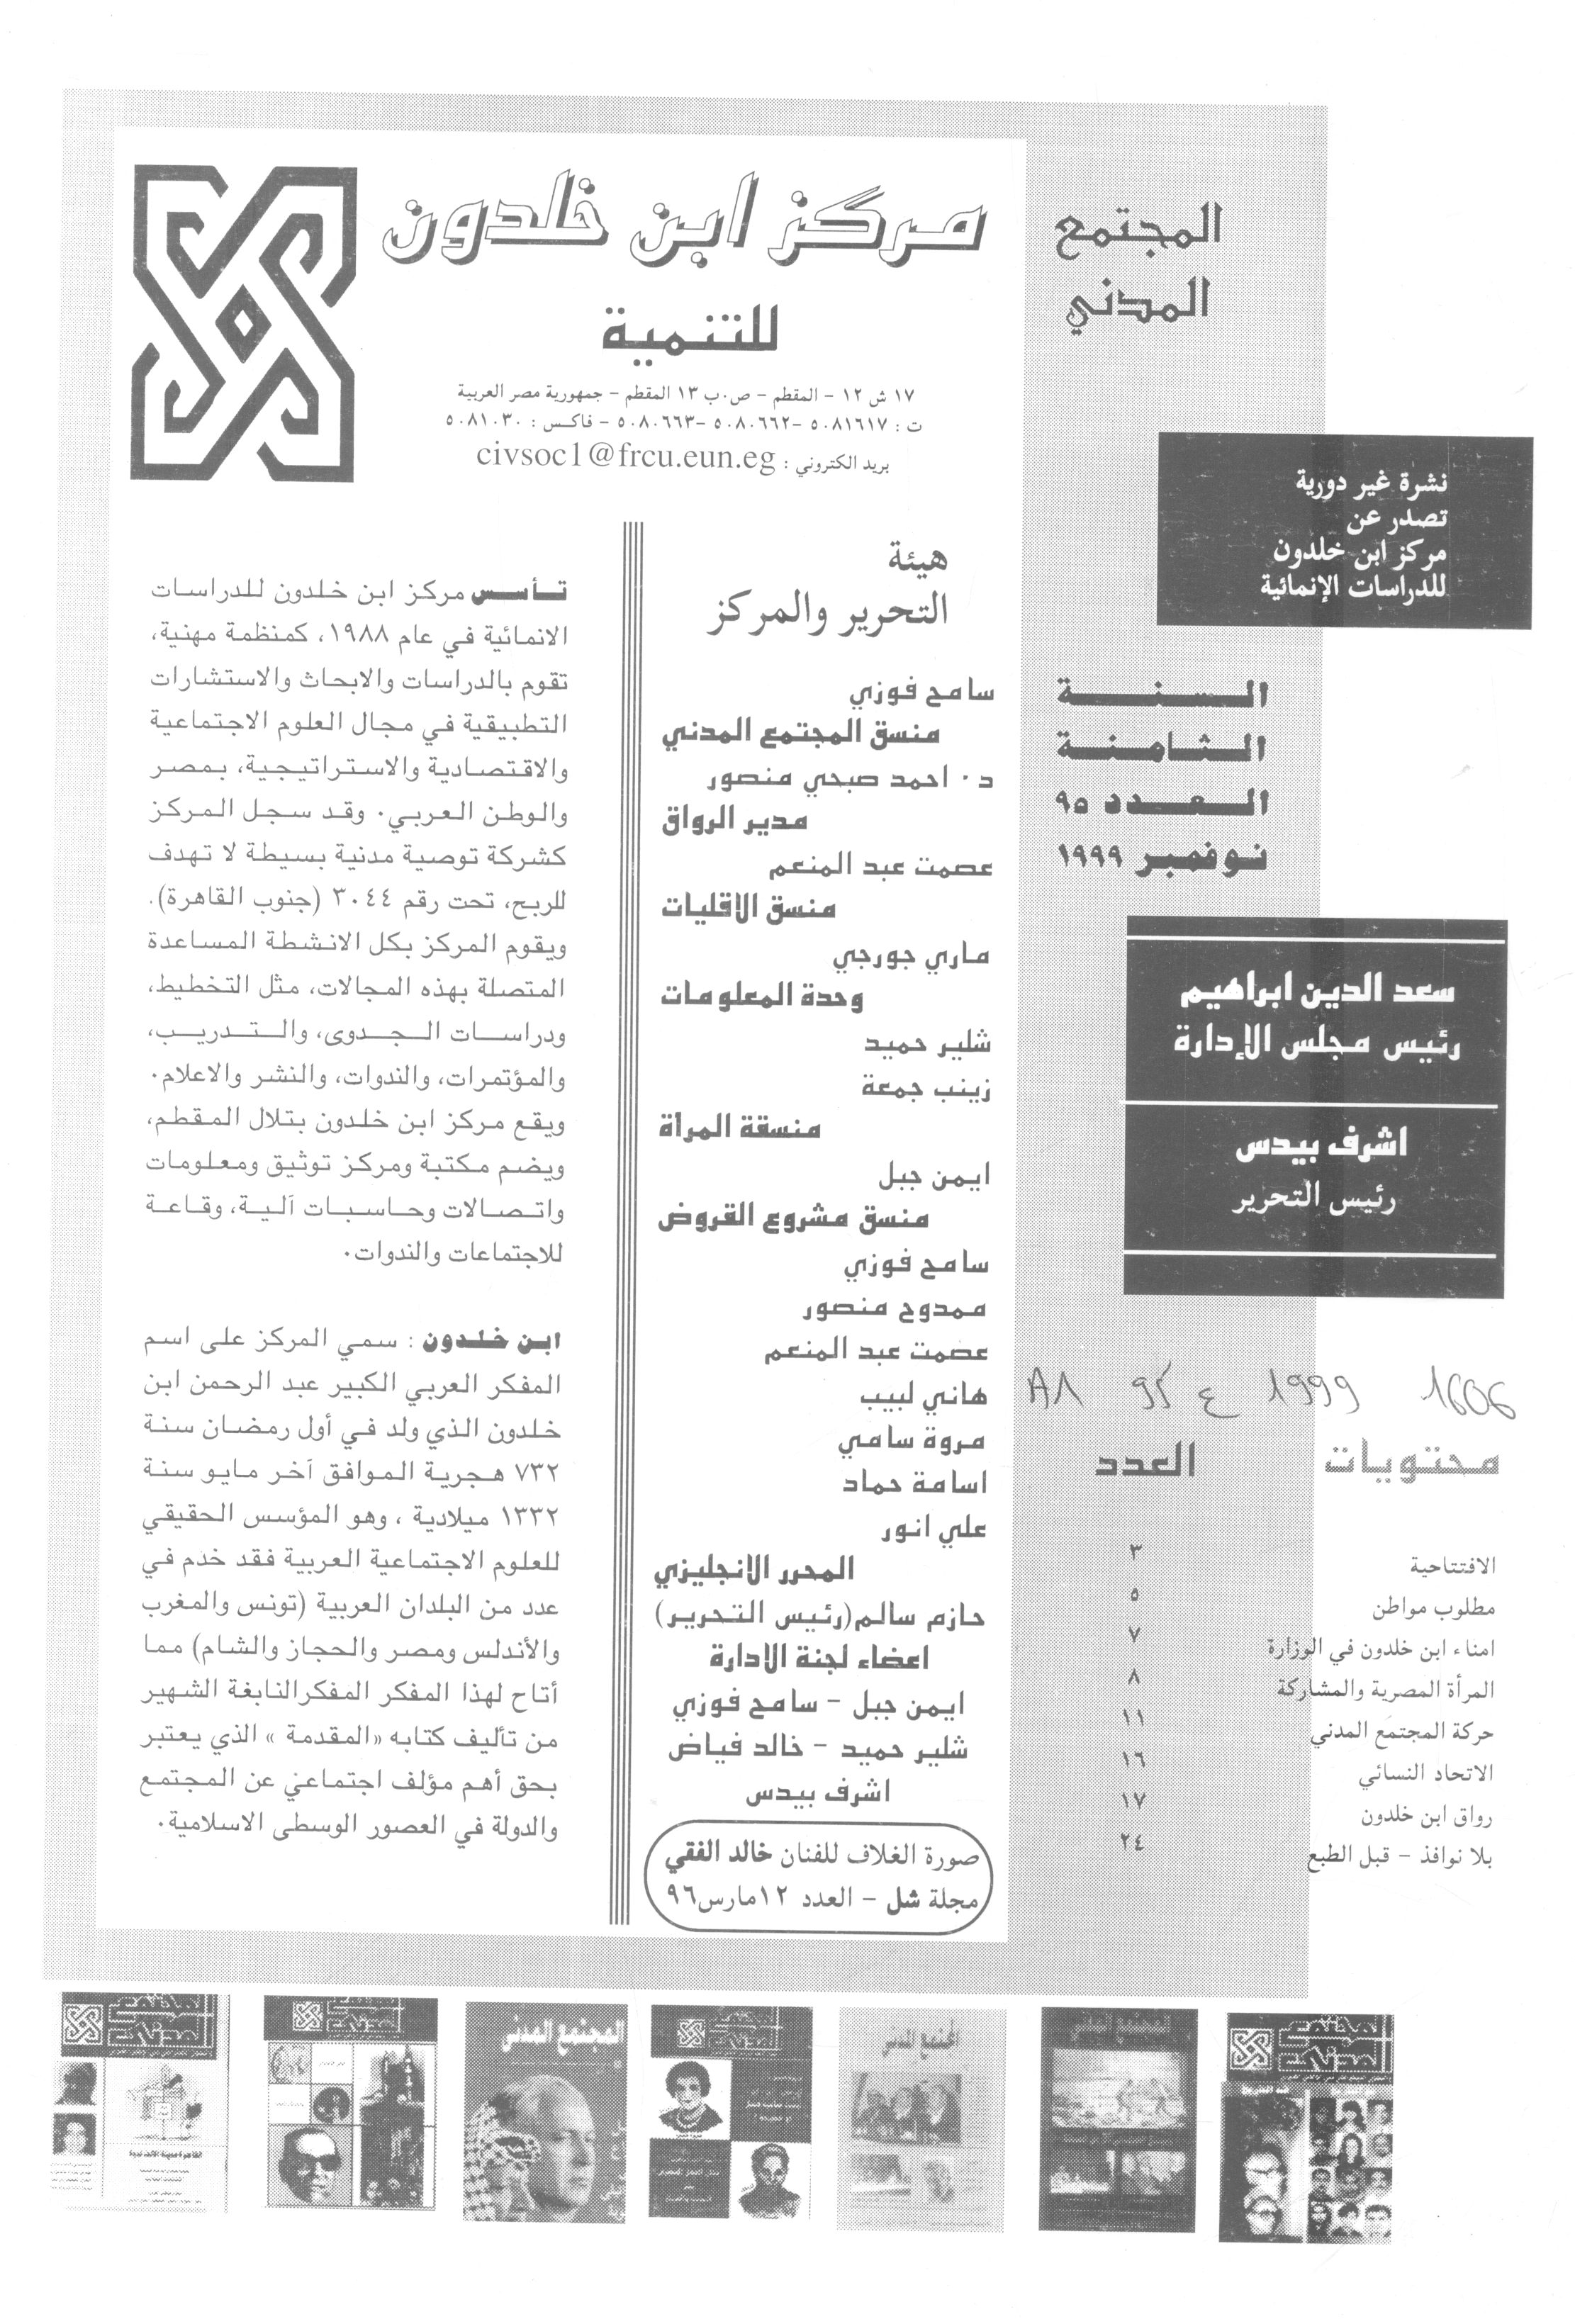 المجتمع
المدني
مركز ابن خلدون
للتنمية
١٧ ش ١٢ - المقطم - ص.ب ١٣ المقطم - جمهورية مصر العربية
ت : ٥٠٨١٦١٧ -٥٠٨٠٦٦٢ -٥٠٨٠٦٦٣ - فاكس : ٥٠٨١٠٣٠
بريد الكتروني : civsoc1@frcu.eun.eg
نشرة غير دورية
تصدر عن
مركز ابن خلدون
للدراسات الإنمائية
السنة
الثامنة
العدد ٩٥
نوفمبر ١٩٩٩
سعد الدين ابراهيم
رئيس مجلس الإدارة
اشرف بيدس
رئيس التحرير
1999
1606
محتويات العدد
الافتتاحية ٣
مطلوب مواطن ٥
امناء ابن خلدون في الوزارة ٧
المرأة المصرية والمشاركة ٨
حركة المجتمع المدني ١١
الاتحاد النسائي ١٦
رواق ابن خلدون ١٧
بلا نوافذ - قبل الطبع ٢٤
هيئة
التحرير والمركز
سامح فوزي
منسق المجتمع المدني
د. احمد صبحي منصور
مدير الرواق
عصمت عبد المنعم
منسق الاقليات
ماري جورجي
وحدة المعلومات
شلير حميد
زينب جمعة
منسقة المرأة
ايمن جبل
منسق مشروع القروض
سامح فوزي
ممدوح منصور
عصمت عبد المنعم
هاني لبيب
مروة سامي
اسامة حماد
علي انور
المحرر الانجليزي
حازم سالم(رئيس التحرير)
اعضاء لجنة الادارة
ايمن جبل - سامح فوزي
شلير حميد - خالد فياض
اشرف بيدس
صورة الغلاف للفنان خالد الفقي
مجلة شل - العدد ١٢مارس٩٦
تأسس مركز ابن خلدون للدراسات
الانمائية في عام ١٩٨٨، كمنظمة مهنية،
تقوم بالدراسات والابحاث والاستشارات
التطبيقية في مجال العلوم الاجتماعية
والاقتصادية والاستراتيجية، بمصر
والوطن العربي. وقد سجل المركز
كشركة توصية مدنية بسيطة لا تهدف
للربح، تحت رقم ٣٠٤٤ (جنوب القاهرة).
ويقوم المركز بكل الانشطة المساعدة
المتصلة بهذه المجالات، مثل التخطيط،
ودراسات الجدوى، والتدريب،
والمؤتمرات، والندوات، والنشر والاعلام.
ويقع مركز ابن خلدون بتلال المقطم،
ويضم مكتبة ومركز توثيق ومعلومات
واتصالات وحاسبات آلية، وقاعة
للاجتماعات والندوات.
ابن خلدون : سمي المركز على اسم
المفكر العربي الكبير عبد الرحمن ابن
خلدون الذي ولد في أول رمضان سنة
٧٣٢ هجرية الموافق آخر مايو سنة
١٣٣٢ ميلادية ، وهو المؤسس الحقيقي
للعلوم الاجتماعية العربية فقد خدم في
عدد من البلدان العربية (تونس والمغرب
والأندلس ومصر والحجاز والشام) مما
أتاح لهذا المفكر المفكرالنابغة الشهير
من تأليف كتابه «المقدمة » الذي يعتبر
بحق أهم مؤلف اجتماعي عن المجتمع
والدولة في العصور الوسطى الاسلامية.
المجتمع المدنى
المجتمع المدنى
المجتمع المدنى
المجتمع المدنى
المجتمع المدنى